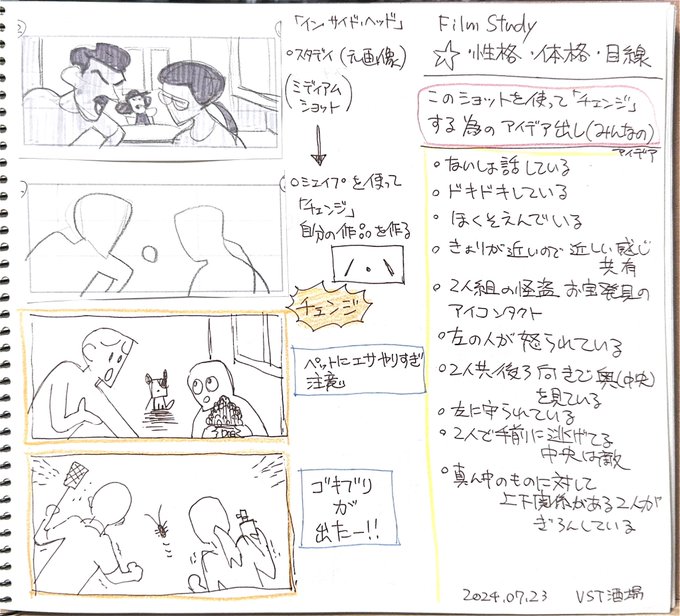 「インサイド・ヘッド」
○スタディ(元画像)
(ミディアム
ショット)
○シェイプを使って
「チェンジ」
自分の作品を作る
チェンジ
ペットにエサやりすぎ
注意
ゴキブリ
が
出たー!!
Film Study
☆・性格・体格・目線
このショットを使って「チェンジ」
する為のアイデア出し(みんなの)
アイデア
○ないしょ話している
○ドキドキしている
○ほくそえんでいる
○きょりが近いので近しい感じ
共有
○2人組の怪盗 お宝発見の
アイコンタクト
○左の人が怒られている
○2人共後ろ向きで奥(中央)
を見ている
○左に守られている
○2人で手前に逃げてる
中央は敵
○真ん中のものに対して
上下関係がある2人が
ぎろんしている
2024.07.23 VST酒場